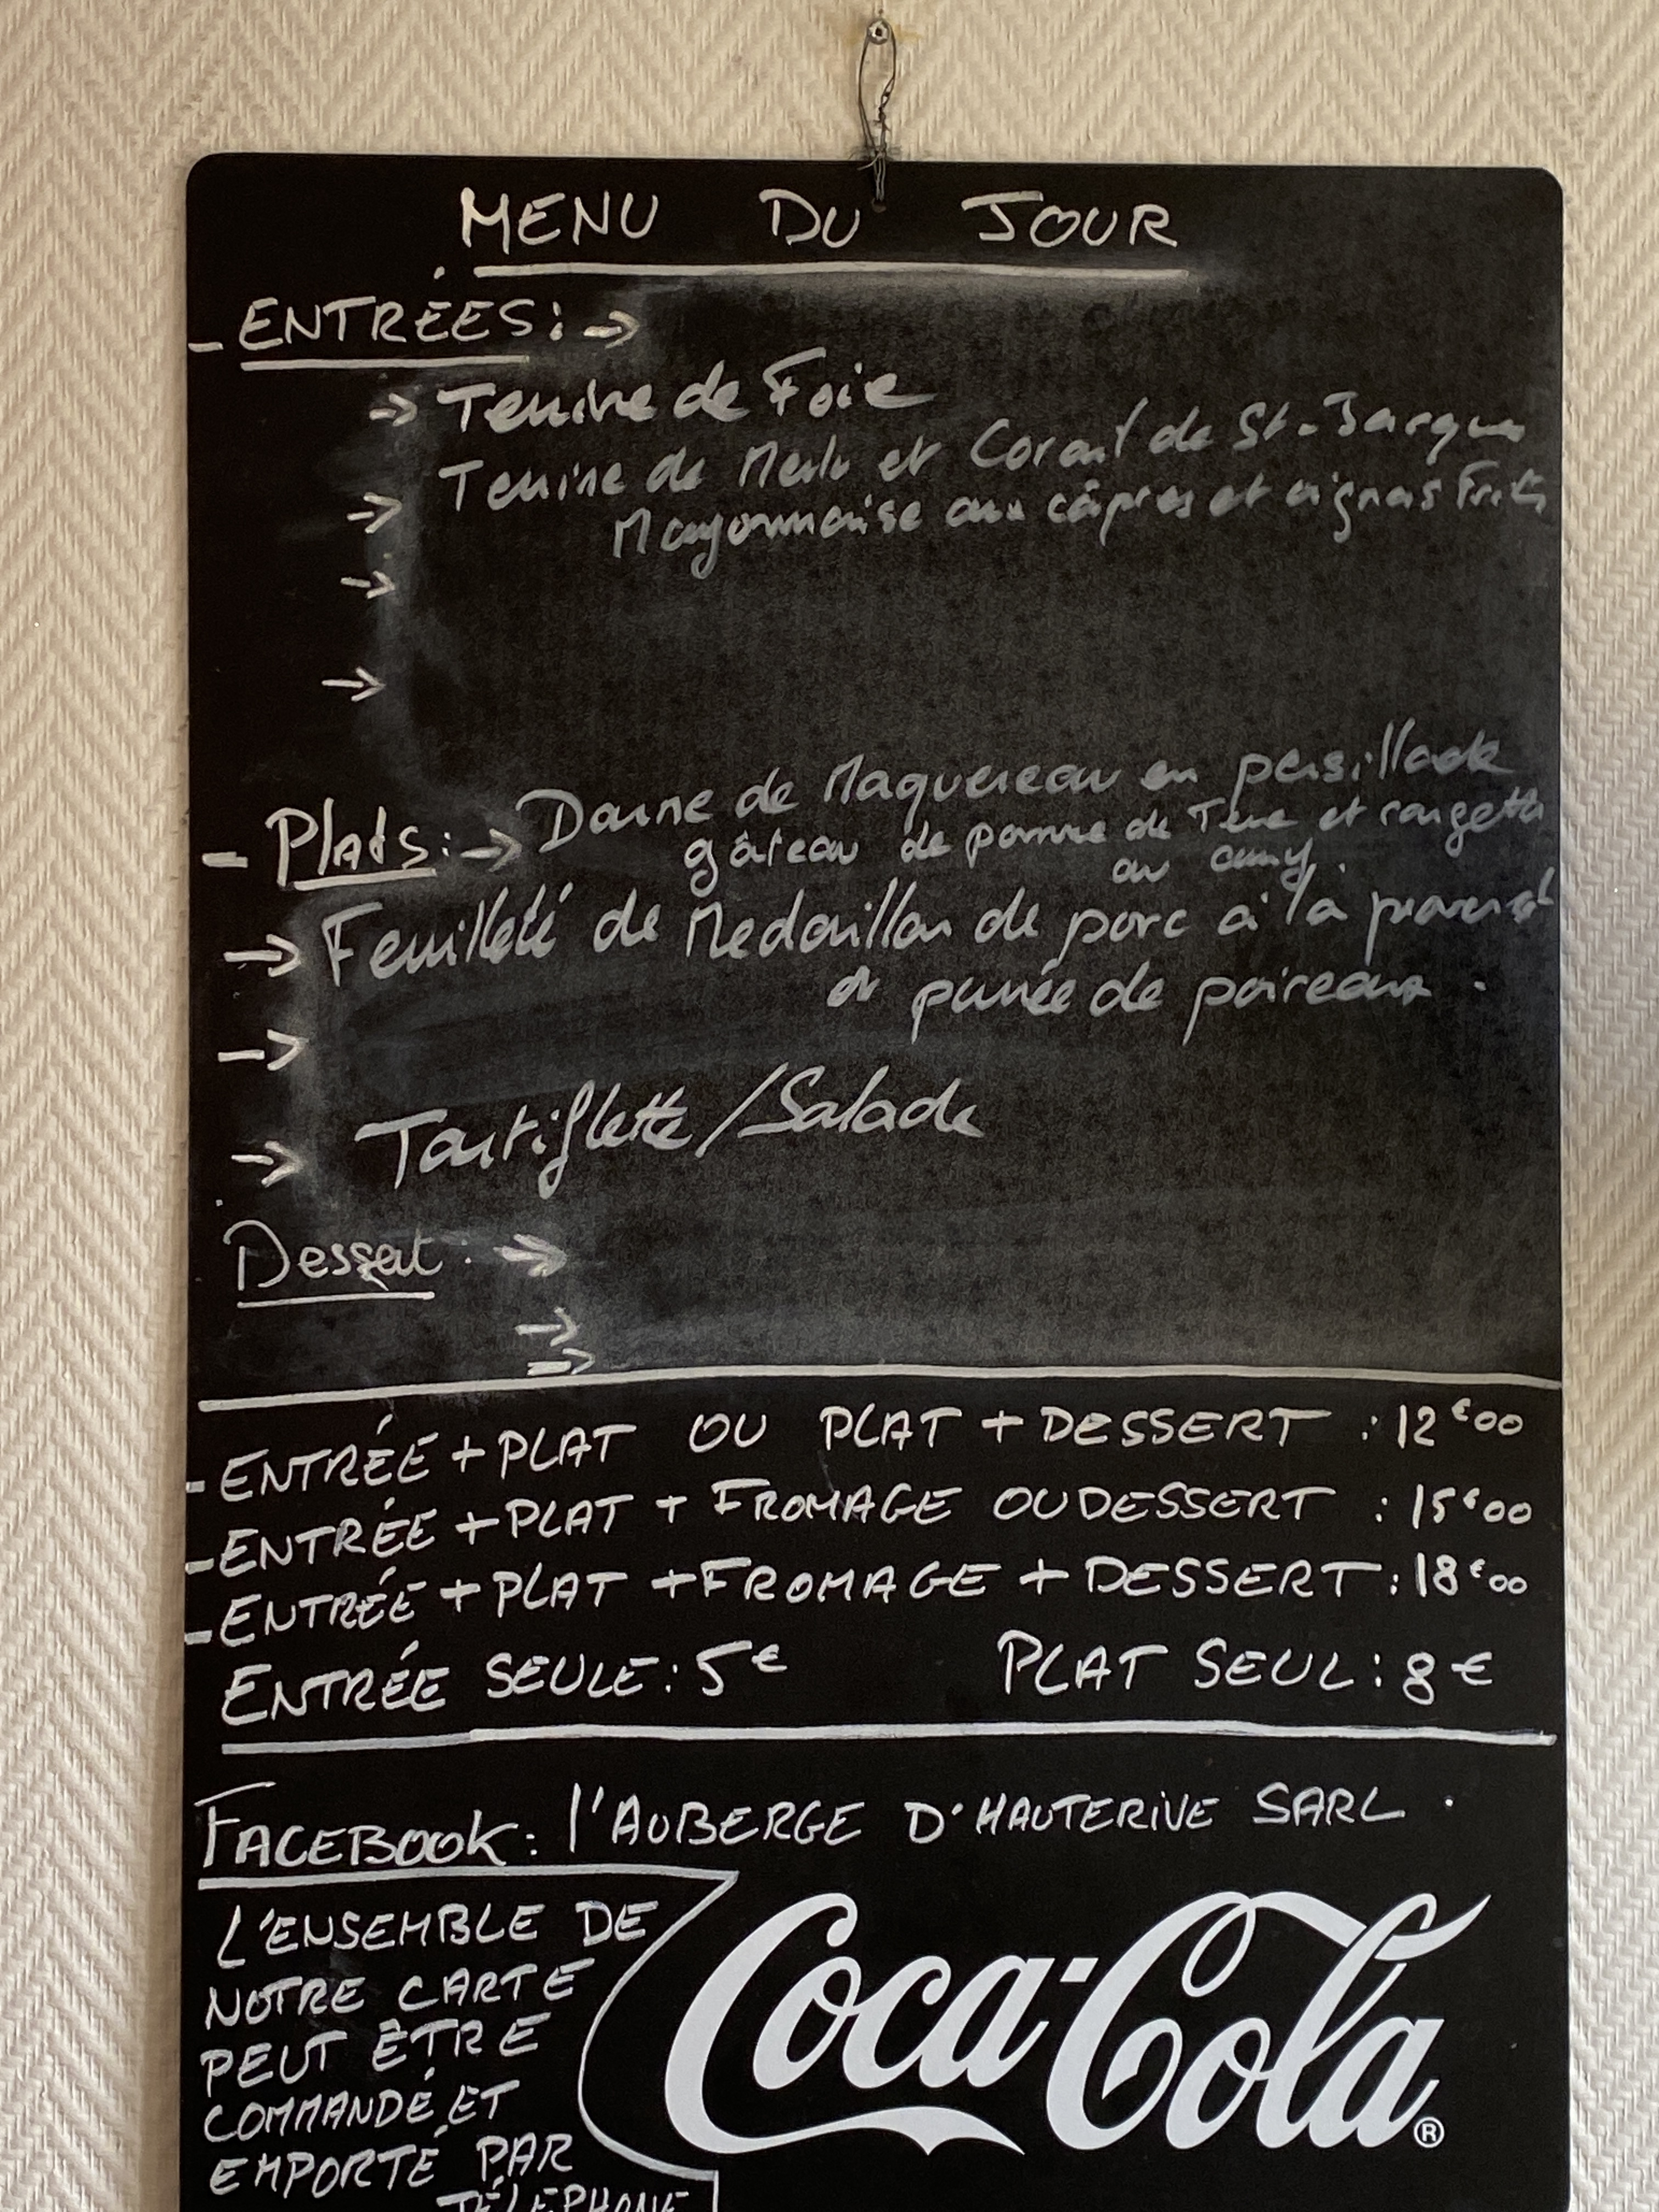 MENU DU JOUR
- ENTRÉES: →
→ Terrine de Foie
→ Terrine de Merlu et Corail de St-Jacques
Mayonnaise aux câpres et oignons Frits
→
→
- Plats: → Darne de Maquereau en persillade
gâteau de pomme de Terre et courgette
au curry.
→ Feuilleté de Medaillon de porc à la
purée de poireaux.
→
→ Tartiflette/Salade
Dessert: →
→
→
- ENTRÉE + PLAT OU PLAT + DESSERT : 12€00
- ENTRÉE + PLAT + FROMAGE OU DESSERT : 15€00
- ENTRÉE + PLAT + FROMAGE + DESSERT : 18€00
ENTRÉE SEULE: 5€ PLAT SEUL: 8€
FACEBOOK: l'AUBERGE D'HAUTERIVE SARL.
L'ENSEMBLE DE
NOTRE CARTE
PEUT ÊTRE
COMMANDÉ ET
EMPORTÉ PAR
TÉLÉPHONE
Coca-Cola®